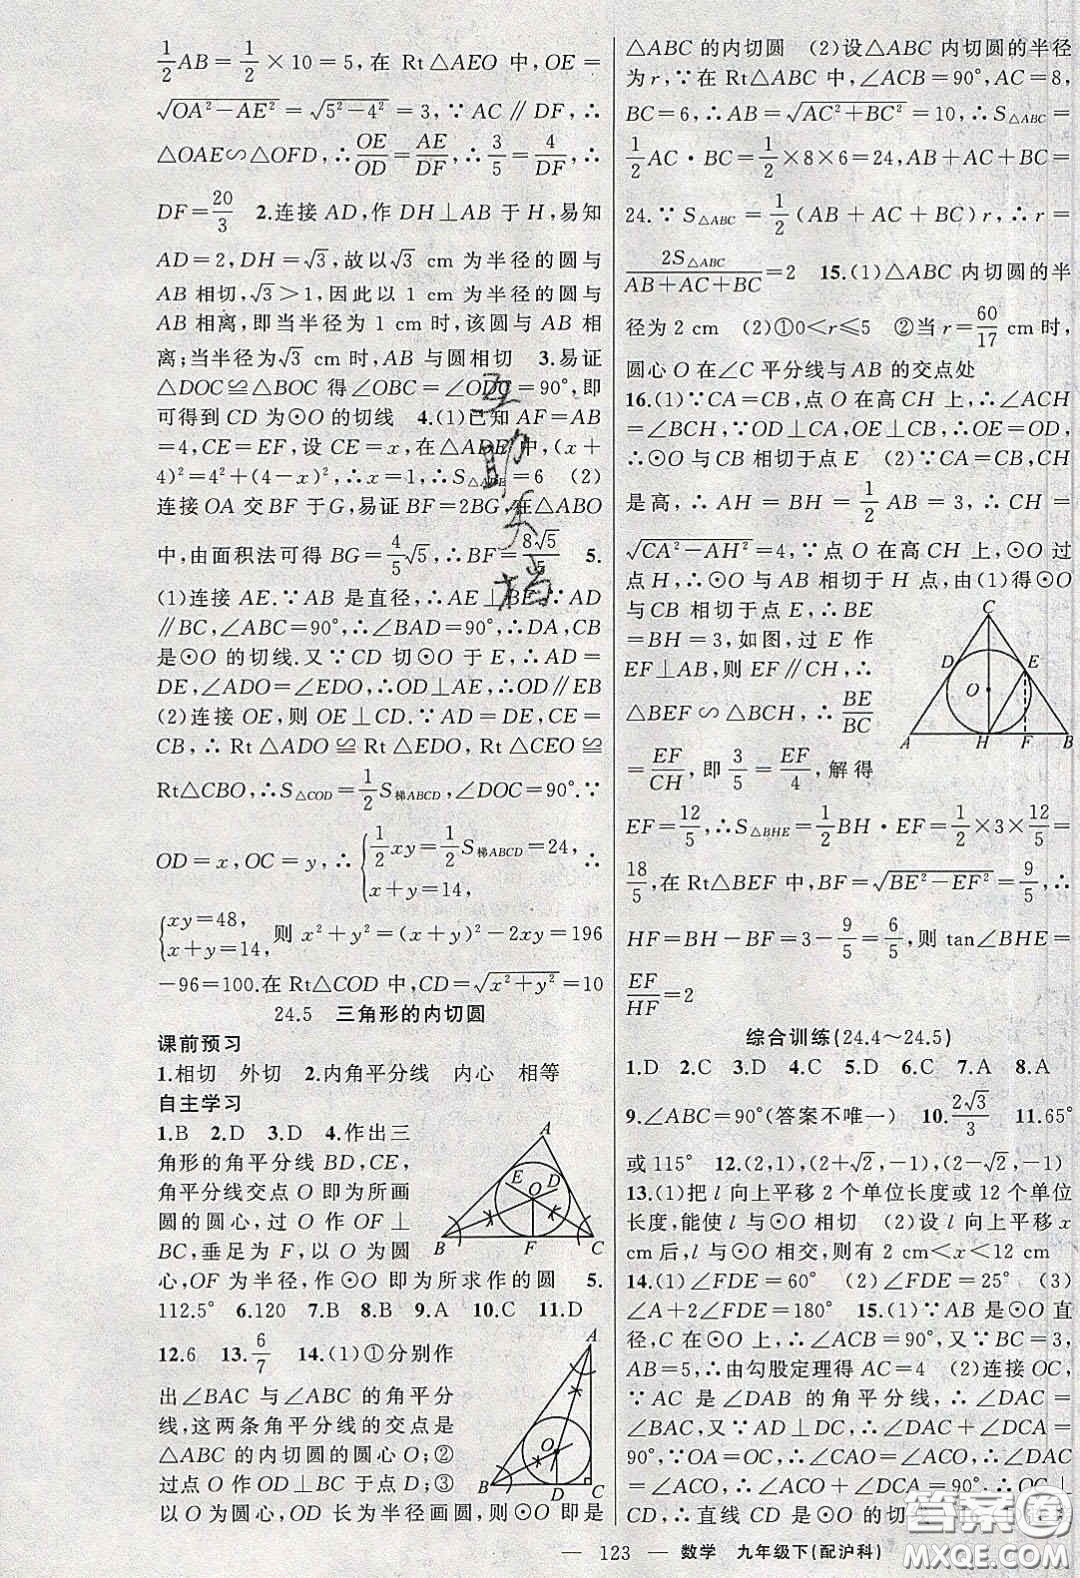 1/2 AB=1/2×10=5,在 Rt△AEO 中,OE=
√(OA²-AE²)=√(5²-4²)=3,∵AC∥DF,∴
△OAE∽△OFD,∴OE/OD=AE/DF,∴3/5=4/DF,∴
DF=20/3 2.连接 AD,作 DH⊥AB 于 H,易知
AD=2,DH=√3,故以√3 cm 为半径的圆与
AB 相切,√3>1,因此以 1 cm 为半径的圆与
AB 相离,即当半径为 1 cm 时,该圆与 AB 相
离;当半径为√3 cm 时,AB 与圆相切 3.易证
△DOC≌△BOC 得∠OBC=∠ODC=90°,即
可得到 CD 为⊙O 的切线 4.(1)已知 AF=AB
=4,CE=EF,设 CE=x,在△ADE 中,(x+
4)²=4²+(4-x)²,∴x=1,∴S△ADE=6 (2)
连接 OA 交 BF 于 G,易证 BF=2BG,在△ABO
中,由面积法可得 BG=4/5√5,∴BF=8√5/5 5.
(1)连接 AE.∵AB 是直径,∴AE⊥BE.∵AD
∥BC,∠ABC=90°,∴∠BAD=90°,∴DA,CB
是⊙O 的切线.又∵CD 切⊙O 于 E,∴AD=
DE,∠ADO=∠EDO,∴OD⊥AE,∴OD∥EB
(2)连接 OE,则 OE⊥CD.∵AD=DE,CE=
CB,∴Rt△ADO≌Rt△EDO,Rt△CEO≌
Rt△CBO,∴S△COD=1/2 S梯ABCD,∠DOC=90°.∵
OD=x,OC=y,∴{1/2 xy=1/2 S梯ABCD=24, x+y=14, ∴
{xy=48, x+y=14, 则 x²+y²=(x+y)²-2xy=196
-96=100.在 Rt△COD 中,CD=√(x²+y²)=10
24.5 三角形的内切圆
课前预习
1.相切 外切 2.内角平分线 内心 相等
自主学习
1.B 2.D 3.D 4.作出三
角形的角平分线 BD,CE,
角平分线交点 O 即为所画
圆的圆心,过 O 作 OF⊥
BC,垂足为 F,以 O 为圆
心,OF 为半径,作⊙O 即为所求作的圆 5.
112.5° 6.120 7.B 8.B 9.A 10.C 11.D
A
E
D
O
B
F
C
12.6 13.6/7 14.(1)①分别作
出∠BAC 与∠ABC 的角平分
线,这两条角平分线的交点是
△ABC 的内切圆的圆心 O;②
过点 O 作 OD⊥BC 于点 D;③
以 O 为圆心,OD 长为半径画圆,则⊙O 即是
A
O
B
D
C
△ABC 的内切圆 (2)设△ABC 内切圆的半径
为 r,∵在 Rt△ABC 中,∠ACB=90°,AC=8,
BC=6,∴AB=√(AC²+BC²)=10,∴S△ABC=
1/2 AC·BC=1/2×8×6=24,AC+BC+AB=
24.∵S△ABC=1/2(AB+AC+BC)r,∴r=
2S△ABC/(AB+AC+BC)=2 15.(1)△ABC 内切圆的半
径为 2 cm (2)①0<r≤5 ②当 r=60/17 cm 时,
圆心 O 在∠C 平分线与 AB 的交点处
16.(1)∵CA=CB,点 O 在高 CH 上,∴∠ACH
=∠BCH,∵OD⊥CA,OE⊥CB,∴OE=OD,
∴⊙O 与 CB 相切于点 E (2)∵CA=CB,CH
是高,∴AH=BH=1/2 AB=3,∴CH=
√(CA²-AH²)=4,∵点 O 在高 CH 上,⊙O 过
点 H,∴⊙O 与 AB 相切于 H 点,由(1)得⊙O
与 CB 相切于点 E,∴BE
=BH=3,如图,过 E 作
EF⊥AB,则 EF∥CH,∴
△BEF∽△BCH,∴BE/BC
=EF/CH,即 3/5=EF/4,解得
C
D
E
O
A
H
F
B
EF=12/5,∴S△BHE=1/2 BH·EF=1/2×3×12/5=
18/5,在 Rt△BEF 中,BF=√(BE²-EF²)=9/5,∴
HF=BH-BF=3-9/5=6/5,则 tan∠BHE=
EF/HF=2
综合训练(24.4~24.5)
1.D 2.C 3.D 4.C 5.D 6.C 7.A 8.A
9.∠ABC=90°(答案不唯一) 10.2√3/3 11.65°
或115° 12.(2,1),(2+√2,-1),(2-√2,-1)
13.(1)把 l 向上平移 2 个单位长度或 12 个单位
长度,能使 l 与⊙O 相切 (2)设 l 向上平移 x
cm 后,l 与⊙O 相交,则有 2 cm<x<12 cm
14.(1)∠FDE=60° (2)∠FDE=25° (3)
∠A+2∠FDE=180° 15.(1)∵AB 是⊙O 直
径,C 在⊙O 上,∴∠ACB=90°,又∵BC=3,
AB=5,∴由勾股定理得 AC=4 (2)连接 OC,
∵AC 是∠DAB 的角平分线,∴∠DAC=
∠BAC,又∵AD⊥DC,∴∠DAC+∠DCA=
90°.∵OA=OC,∴∠CAO=∠ACO,∴∠DAC
=∠ACO,∴∠ACO+∠DCA=90°,∴OC⊥
CD,∴直线 CD 是⊙O 的切
— 123 — 数学 九年级下(配沪科)
答案圈
MXQE.COM